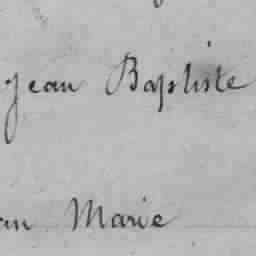 Jean Baptiste
an Marie